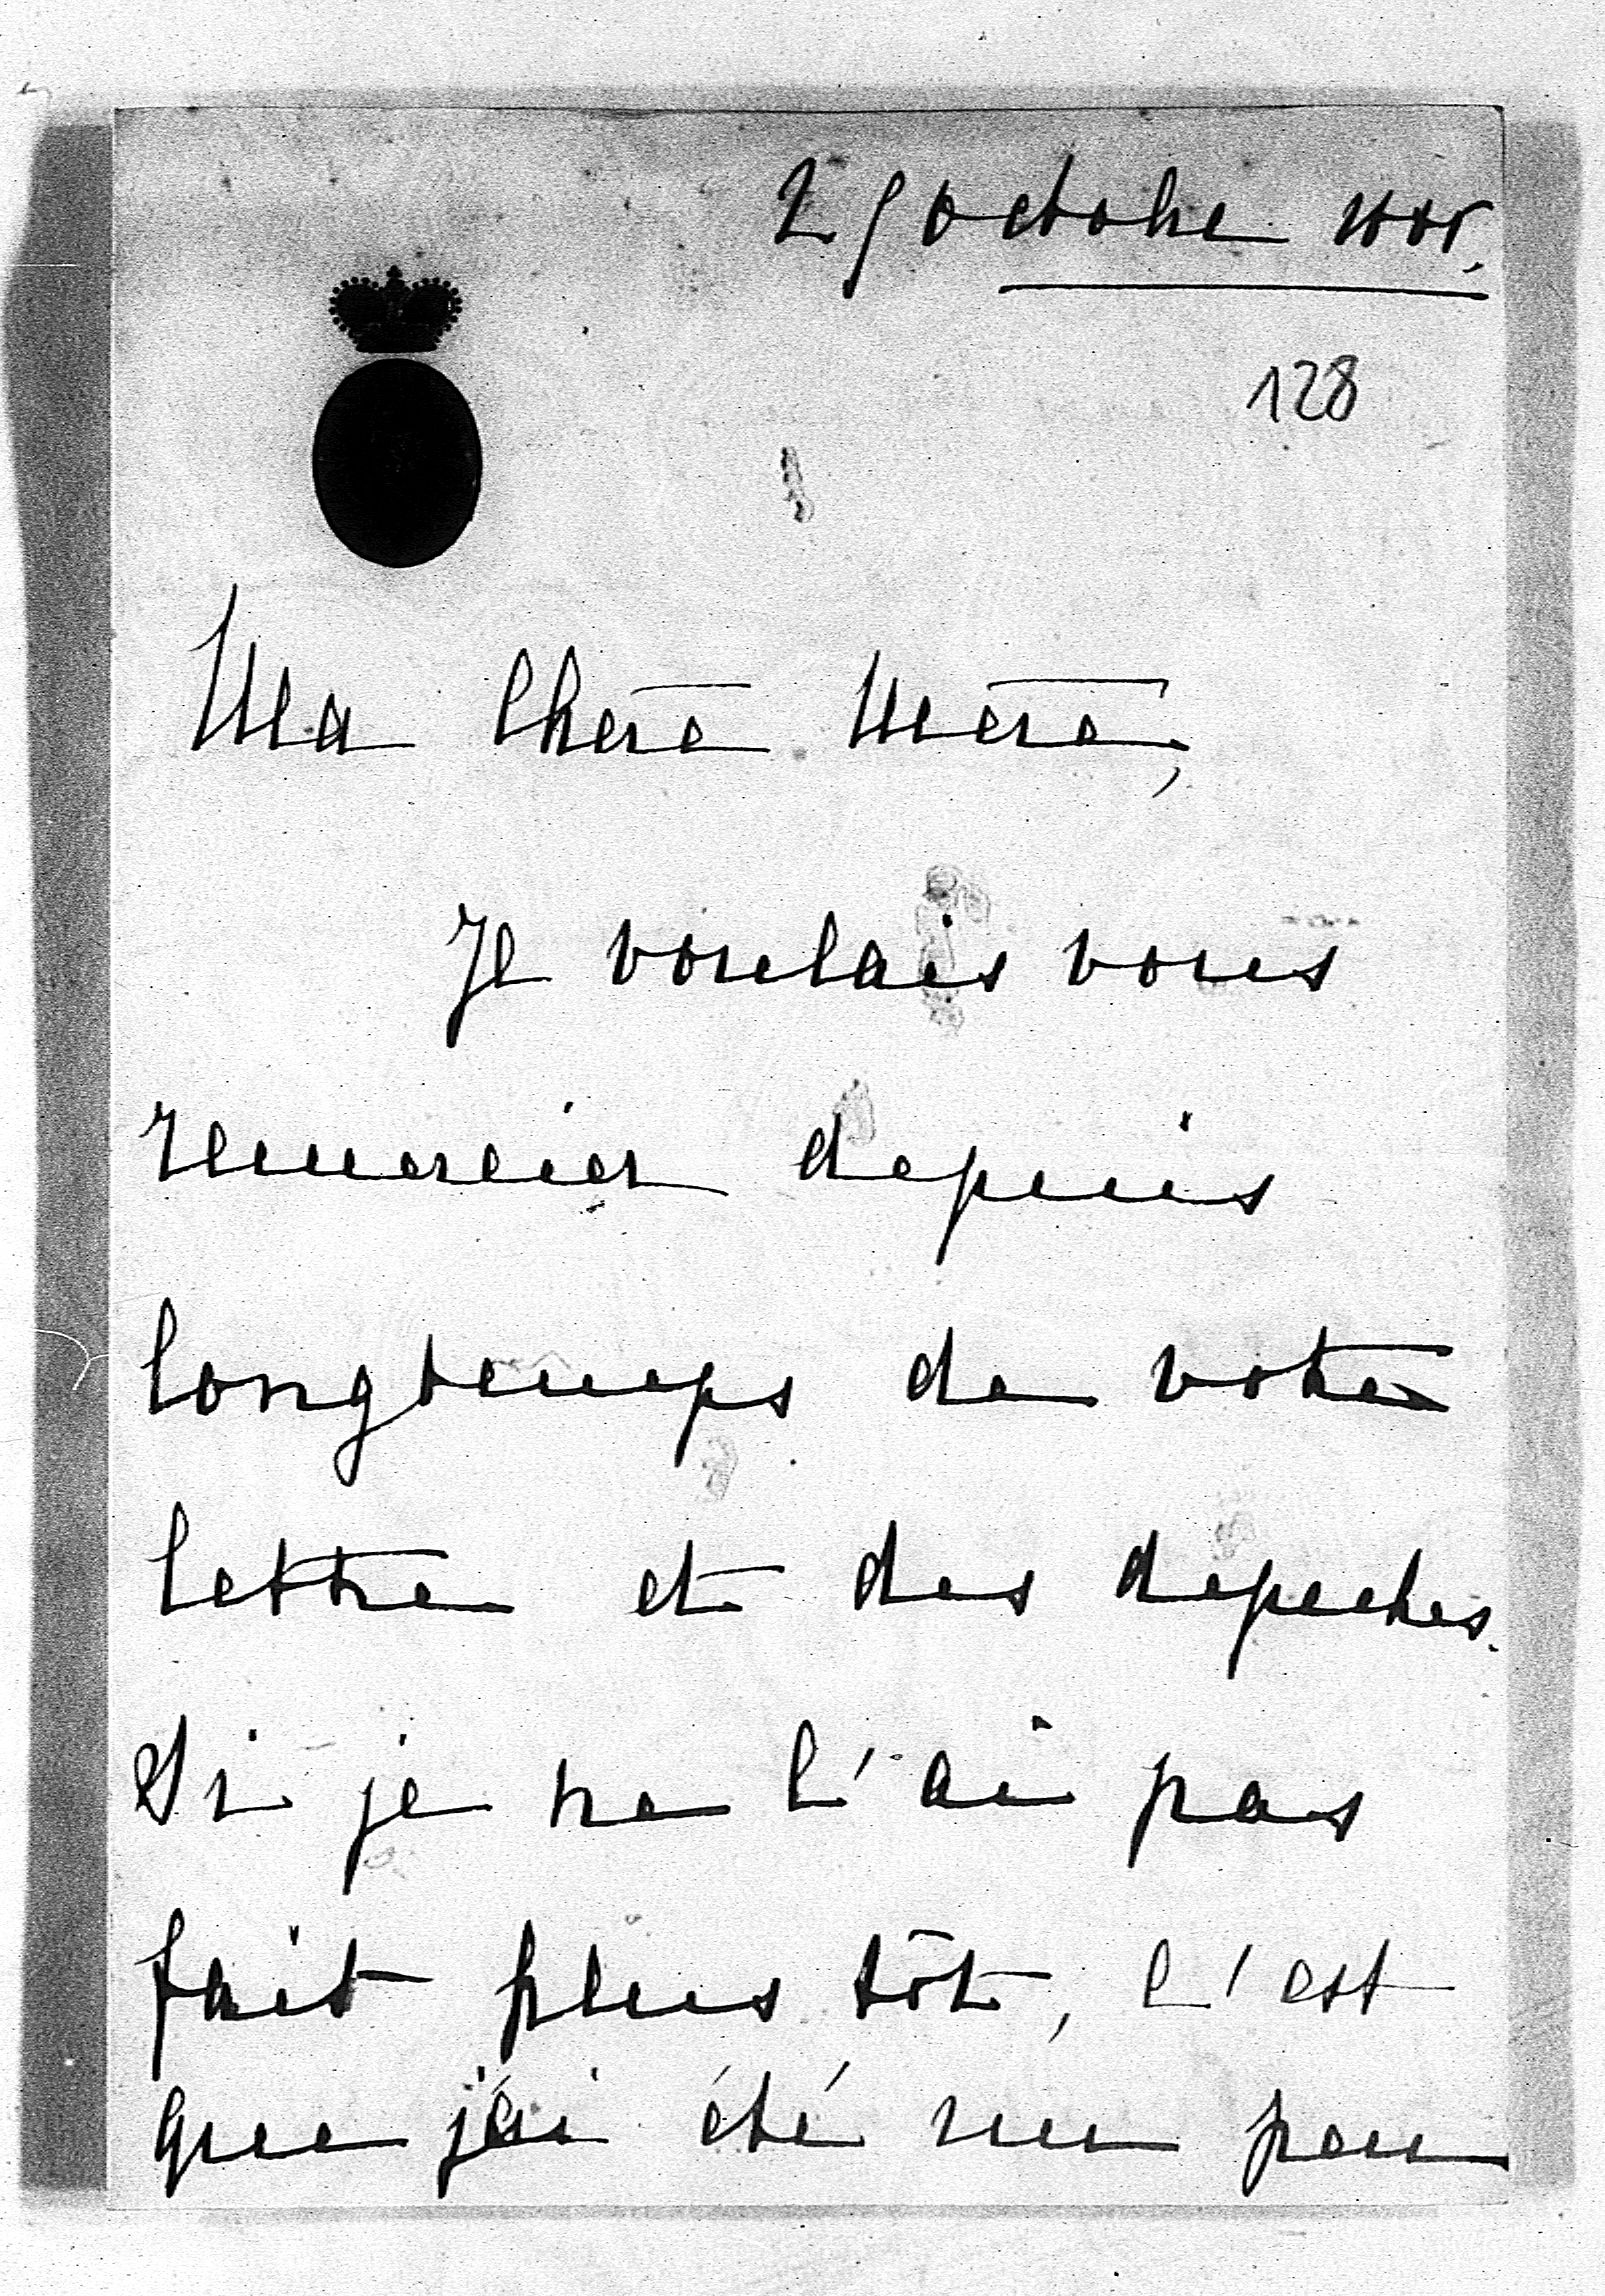 29 octobre
128
Ma Chère Mère,
Je voulais vous
remercier depuis
longtemps de votre
lettre et des depeches.
Si je ne l'ai pas
fait plus tôt, c'est
que j'ai été un peu